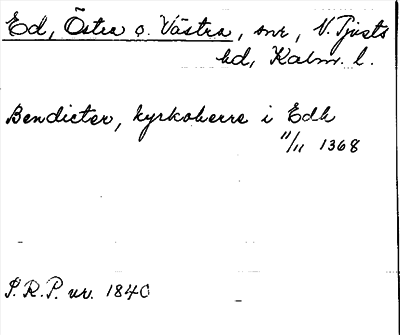 Ed, Östra o. Västra, snr, N. Tjusts
hd, Kalm. l.
Bendicter, kyrkoherre i Edh
11/11 1368
S.R.P. nr. 1840